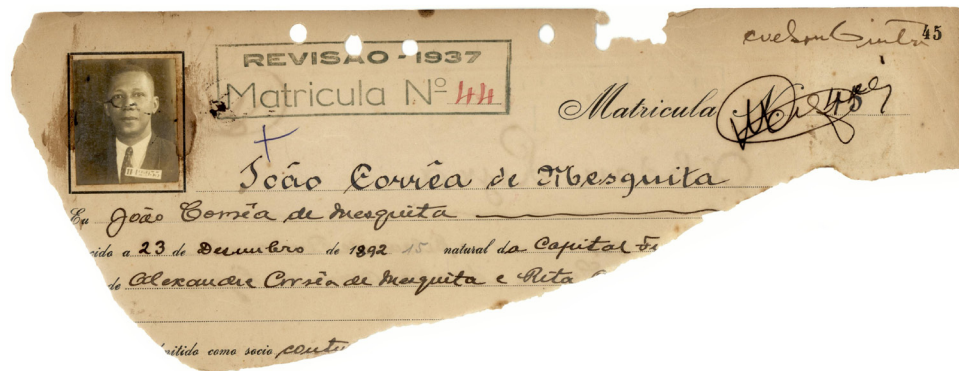 45
REVISAO - 1937
Matricula Nº 44
Matricula 45
João Corrêa de Mesquita
Eu João Corrêa de Mesquita
cido a 23 de Desembro de 1892 natural da Capital Fe
de Alexandre Corrêa de Mesquita e Rita
mitido como socio contu